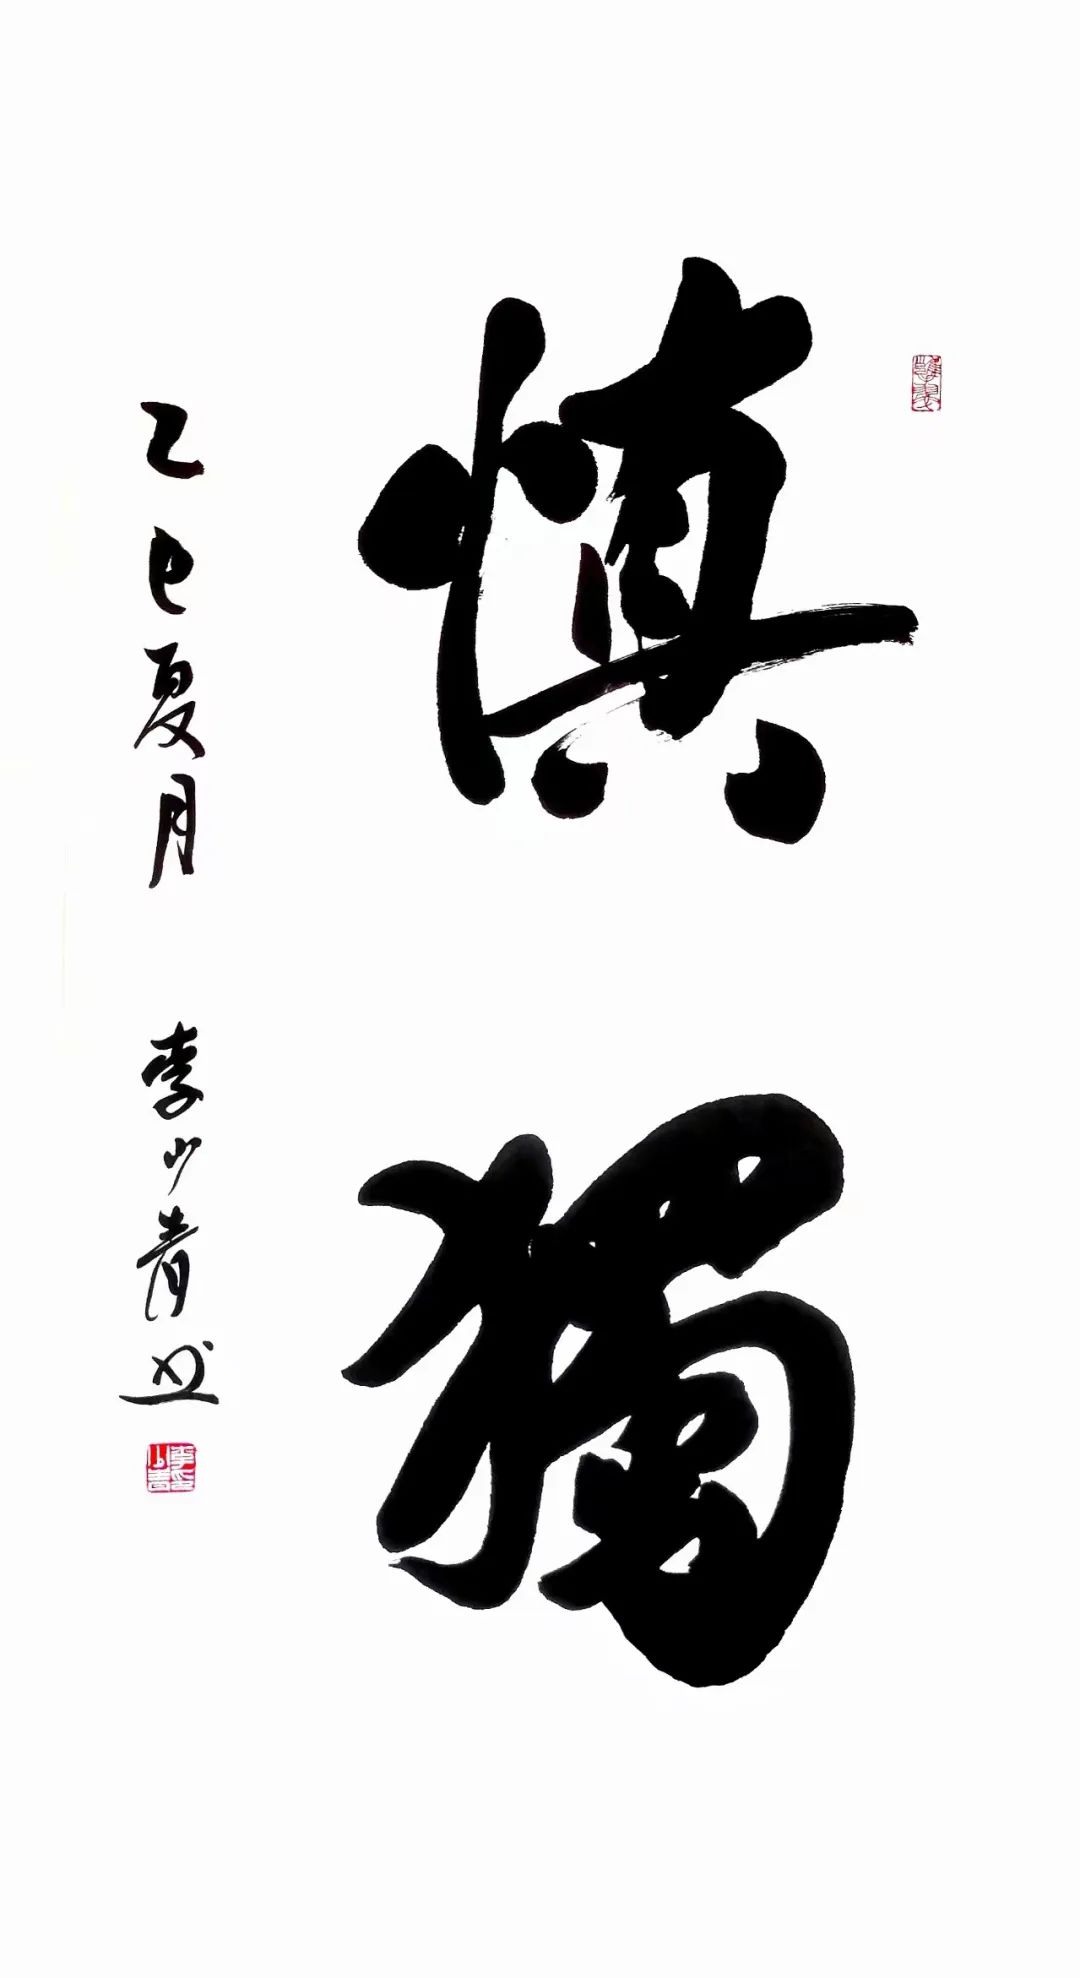 慎獨
乙巳夏月 李少青书